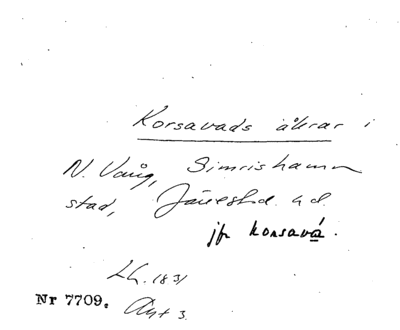 Korsavads åkrar i
N. Vång, Simrishamn
stad, Järrestad hd.
jfr korsavá.
Lh. 1831
Nr 7709. Akt 3.